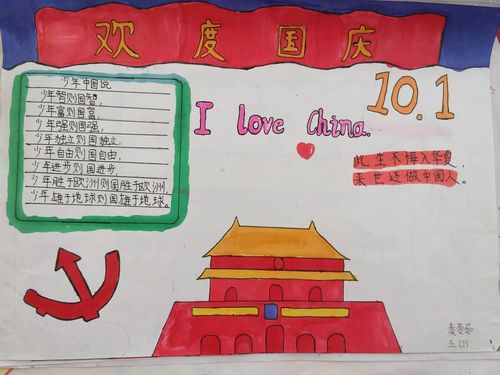 欢度国庆
少年中国说
少年智则国智,
少年富则国富,
少年强则国强,
少年独立则国独立,
少年自由则国自由,
少年进步则国进步,
少年胜于欧洲则国胜于欧洲,
少年雄于地球则国雄于地球。
10.1
I love China.
此生不悔入华夏,
来世还做中国人。
五(2)